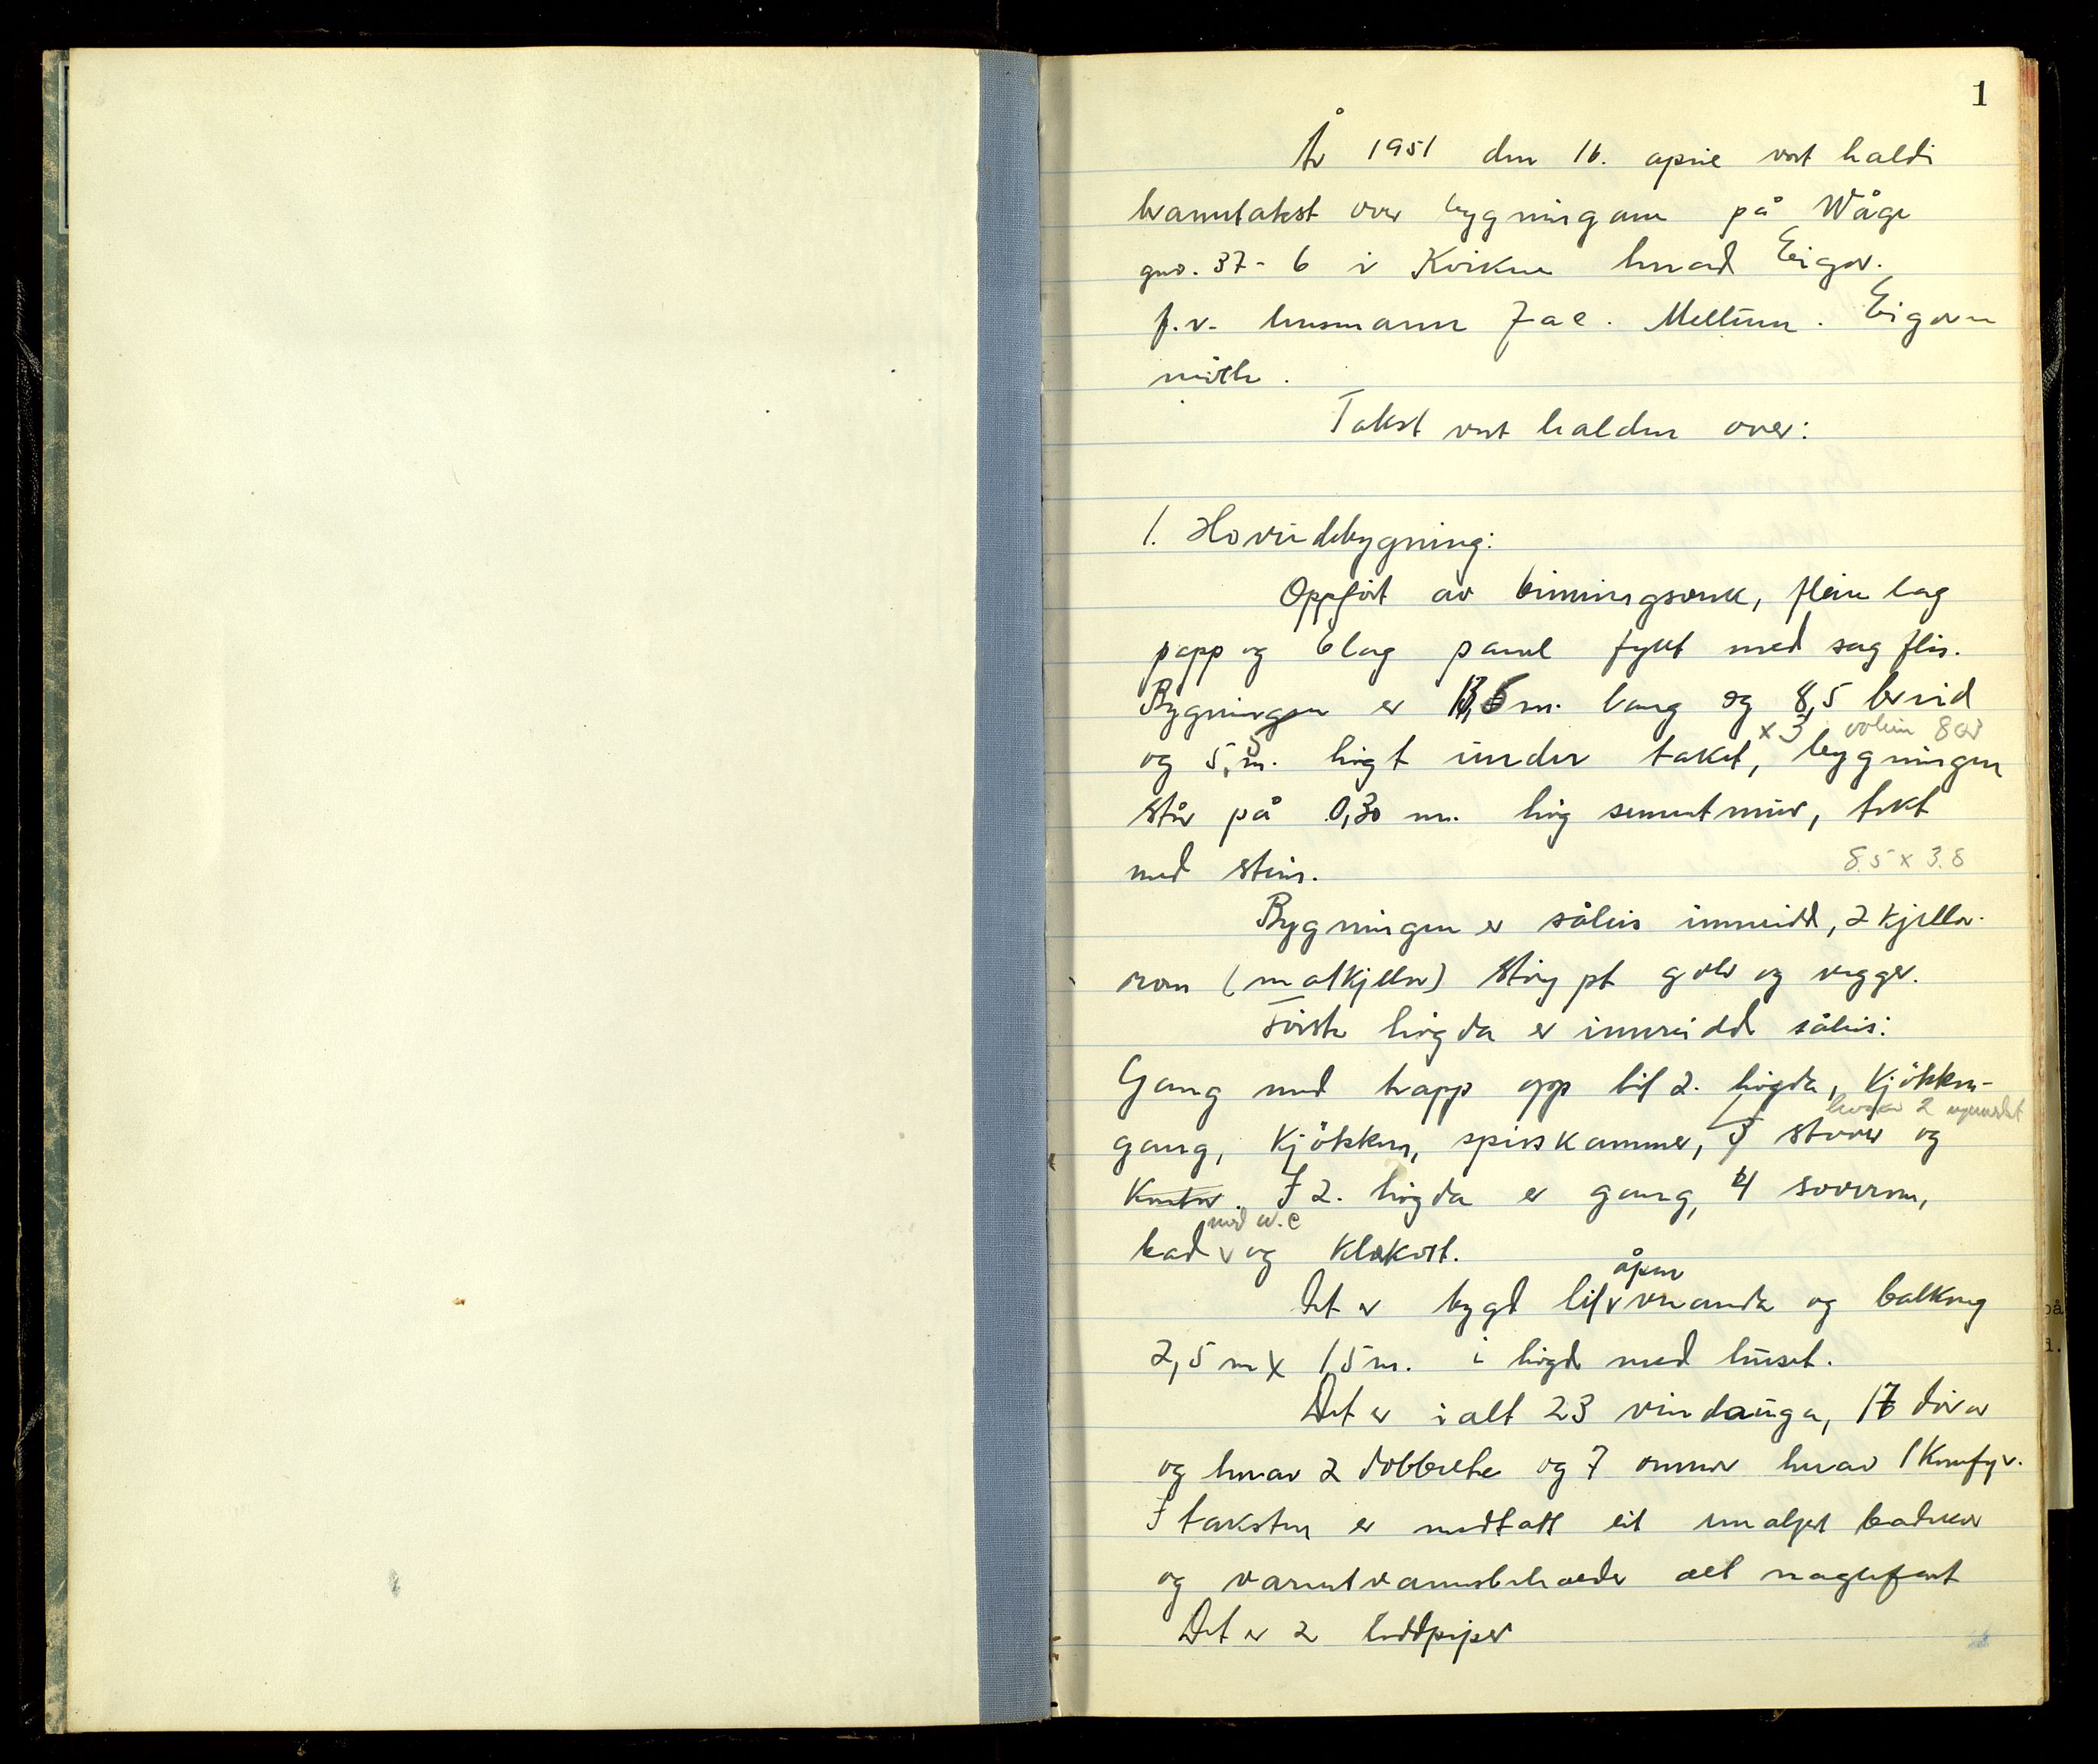 1
År 1951 den 16. april vart haldi
branntakst over bygningane på Våge
gno. 37-6 i Kvikne herad Eigar.
f.v. lensmann Jac. Mellum. Eigaren
møtte.
Takst vart halden over:
1. Hovudbygning:
Oppført av binningsverk, fleire lag
papp og 6 lag panel fyllt med sagflis.
Bygningen er 13,6 m. lang og 8,5 breid
x 3 8
og 5,5 m. høgt under taket, bygningen
står på 0,30 m. høg sementmur, tekt
med stein. 8.5 x 3.8
Bygningen er såleis innreidd, 2 kjellar-
rom (matkjellar) støypt golv og vegger.
Første høgda er innreidd såleis:
Gang med trapp opp til 2. høgda, kjøkken-
hvorav 2
gang, kjøkken, spisskammer, 3 stover og
Kontor. I 2. høgda er gang, 4 soverom,
med w.c
bad og klekott.
åpen
Det er bygd til veranda og balkong
2,5 m x 1,5 m. i høgd med huset.
Det er i alt 23 vindauga, 17 dører
og herav 2 dobbelte og 7 omner herav 1 komfyr.
I taksten er medtatt eit emaljert badekar
og varmtvannsbeholder alt naglefast
Det er 2 luddpiper